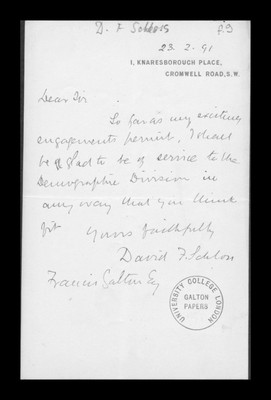 D. F Schloss
23. 2. 91
1, KNARESBOROUGH PLACE,
CROMWELL ROAD, S.W.
Dear Sir
So far as my existing
engagements permit, I shall
be glad to be of service to the
Demographic Division in
any way that you think
fit
Yours faithfully
David F. Schloss
Francis Galton Esq
UNIVERSITY COLLEGE LONDON
GALTON
PAPERS